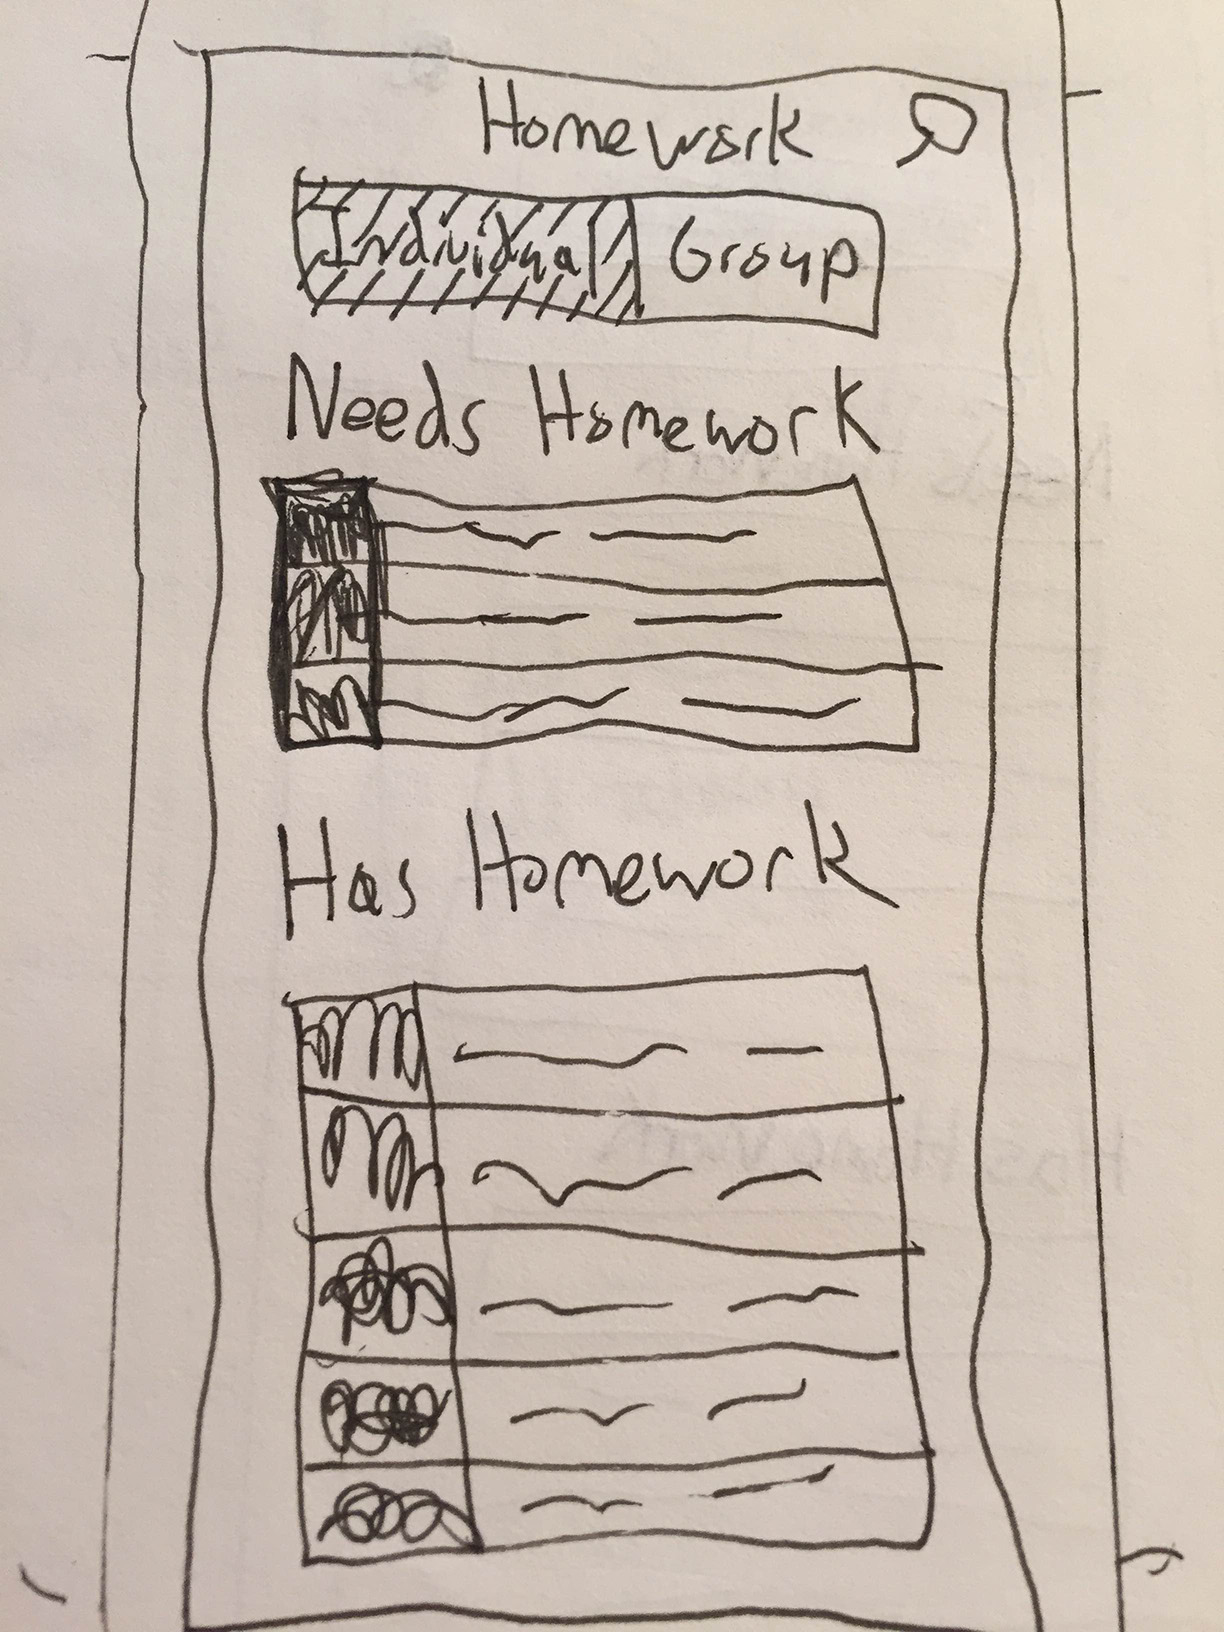 Homework
Individual Group
Needs Homework
Has Homework